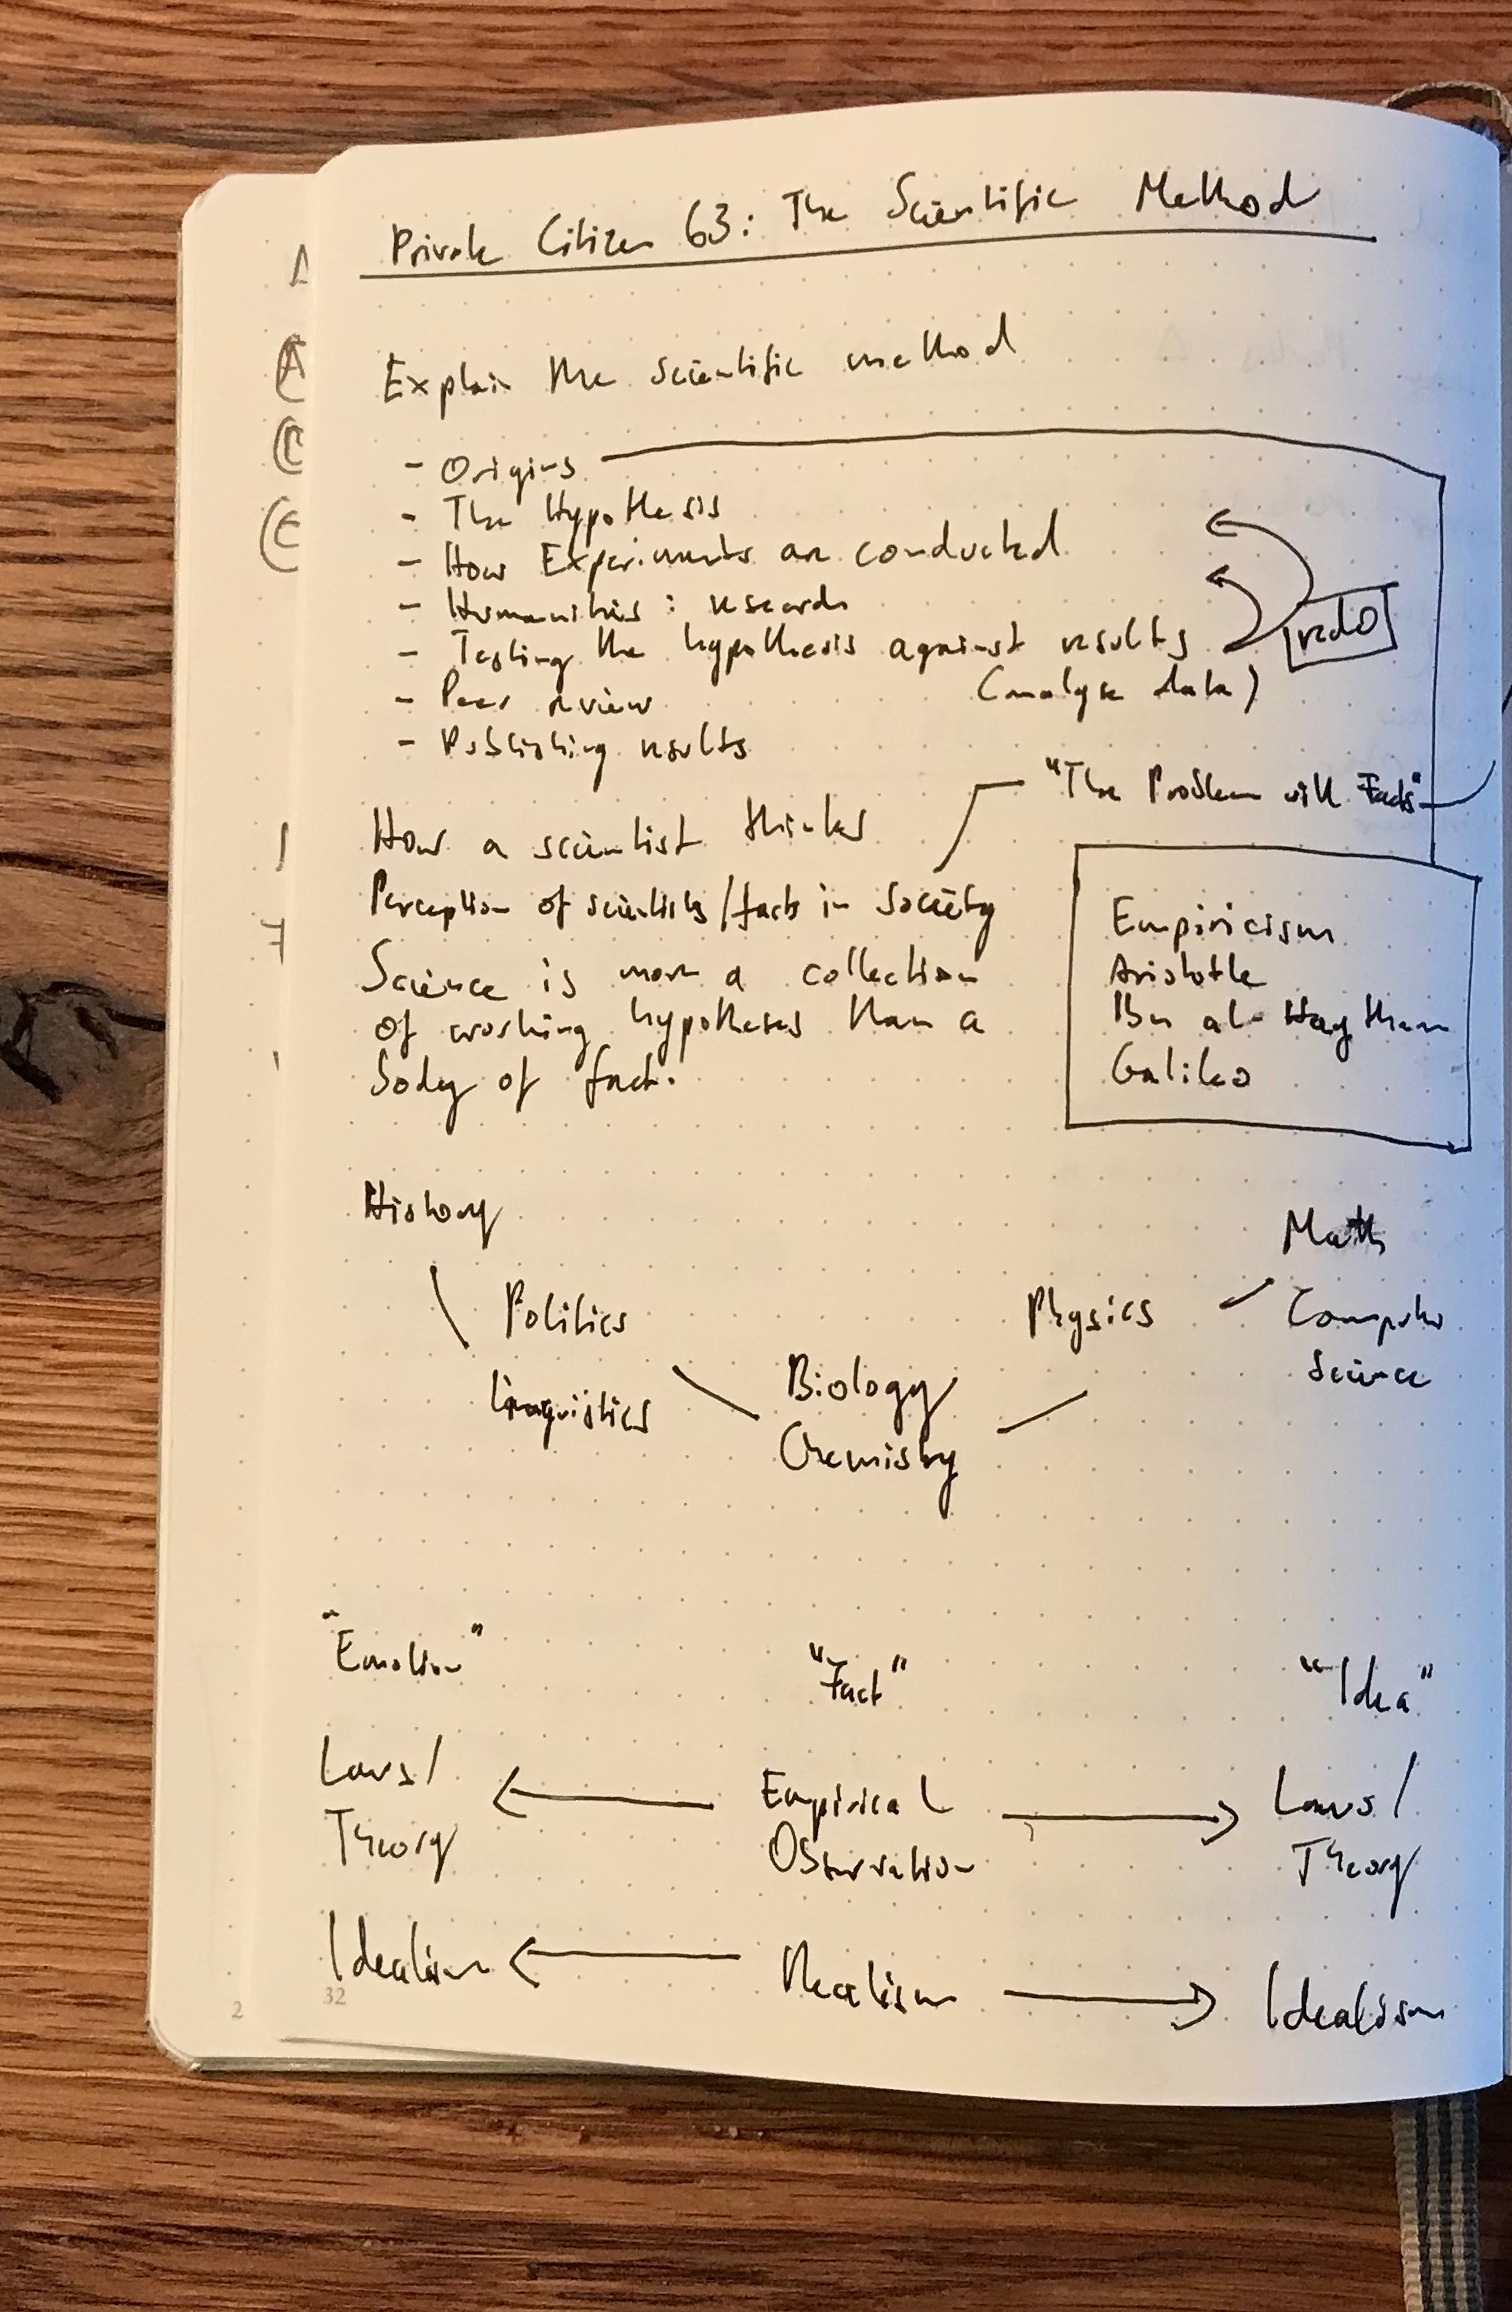 Private Citizen 63: The Scientific Method
Explain the scientific method
- Origins
- The Hypothesis
- How Experiments are conducted
- Humanities: research
- Testing the hypothesis against results
(analyse data)
redo
- Peer review
- Publishing results
"The Problem with Facts"
How a scientist thinks
Perception of scientists/facts in society
Science is more a collection
of working hypotheses than a
body of fact.
Empiricism
Aristotle
Ibn al-Haytham
Galileo
History
Politics
Linguistics
Biology
Chemistry
Physics
Math
Computer
Science
"Emotion"
"Fact"
"Idea"
Laws/
Theory
Empirical
Observation
Laws/
Theory
Idealism
Realism
Idealism
2
32